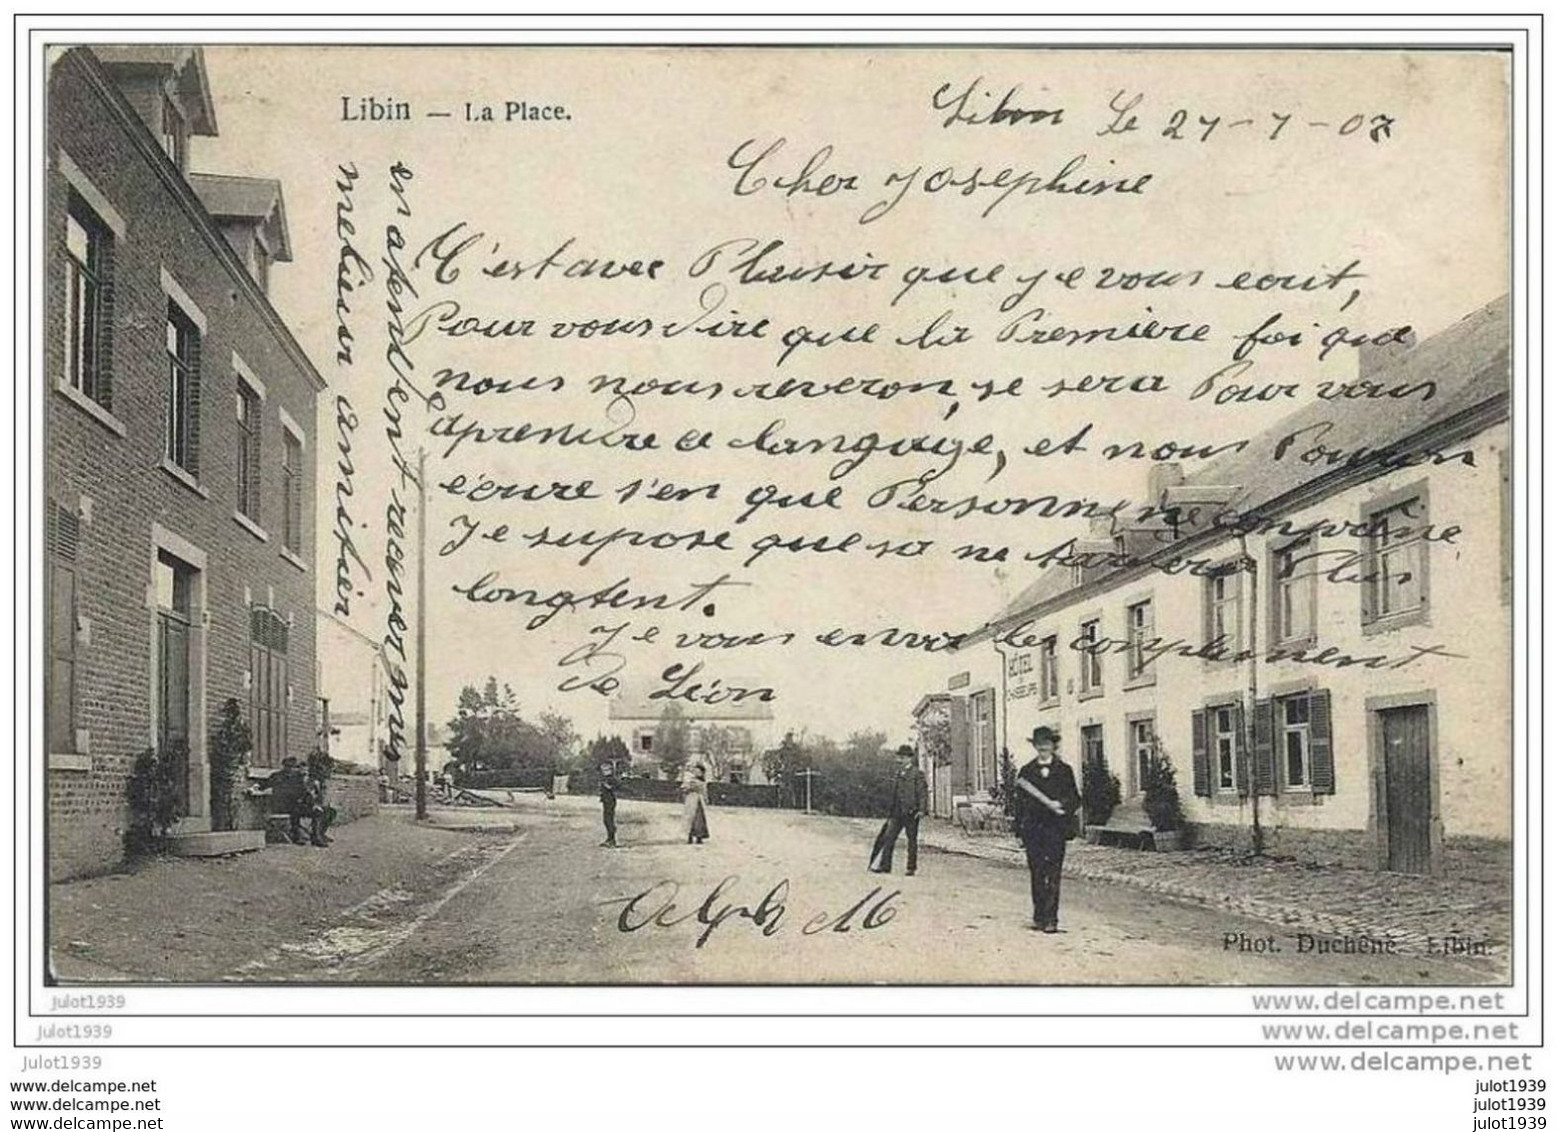 Libin — La Place.
Libin Le 27-7-07
Cher Josephine
C'est avec Plaisir que je vous ecrit,
Pour vous dire que la Premiere foi que
nous nous reveron, se sera Pour vous
aprendre ce language, et nous Pouron
ecrire s'en que Personne ne conpraine
Je supose que sa ne tarera Plus
longtent.
Je vous envoi les complement
de Léon
en atendent recever mes
melieur amitier
Alph M
HÔTEL
Phot. Duchêne. Libin.
julot1939
julot1939
julot1939
www.delcampe.net
www.delcampe.net
www.delcampe.net
www.delcampe.net
www.delcampe.net
www.delcampe.net
julot1939
julot1939
julot1939